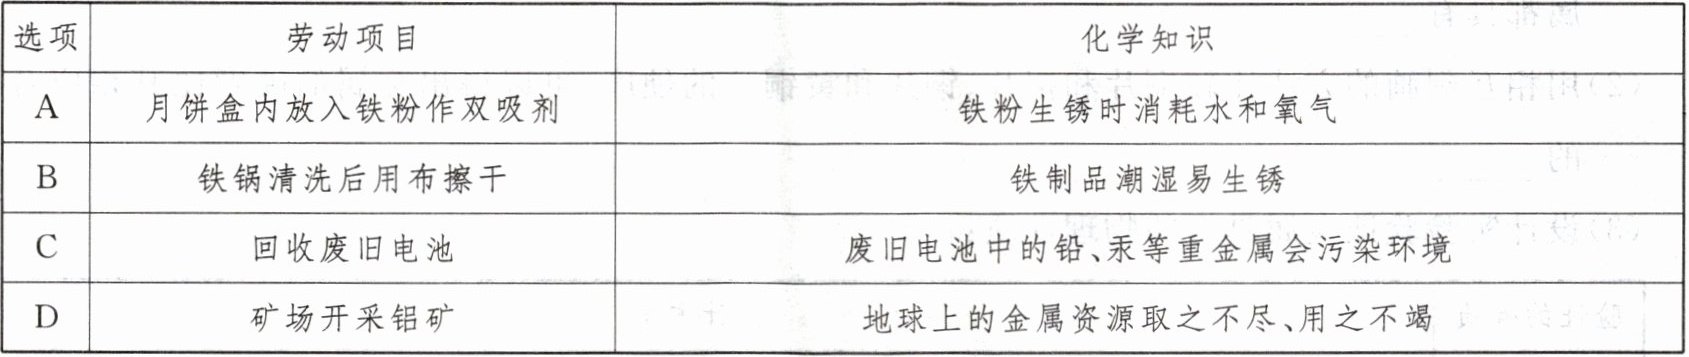 选项 劳动项目 化学知识
A 月饼盒内放入铁粉作双吸剂 铁粉生锈时消耗水和氧气
B 铁锅清洗后用布擦干 铁制品潮湿易生锈
C 回收废旧电池 废旧电池中的铅、汞等重金属会污染环境
D 矿场开采铝矿 地球上的金属资源取之不尽、用之不竭